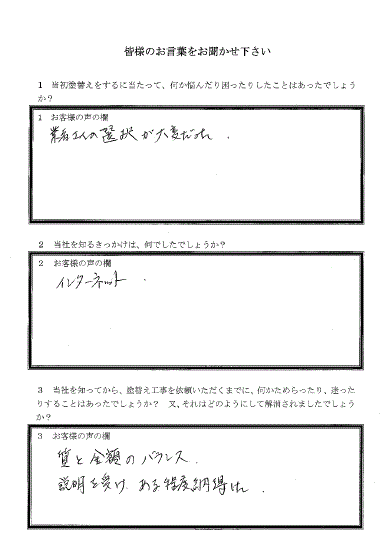 皆様のお言葉をお聞かせ下さい
1 当初塗替えをするに当たって、何か悩んだり困ったりしたことはあったでしょう
か?
1 お客様の声の欄
業者さんの選択が大変だった.
2 当社を知るきっかけは、何でしたでしょうか?
2 お客様の声の欄
インターネット.
3 当社を知ってから、塗替え工事を依頼いただくまでに、何かためらったり、迷った
りすることはあったでしょうか? 又、それはどのようにして解消されましたでしょう
か?
3 お客様の声の欄
質と金額のバランス.
説明を受け、ある程度納得した.